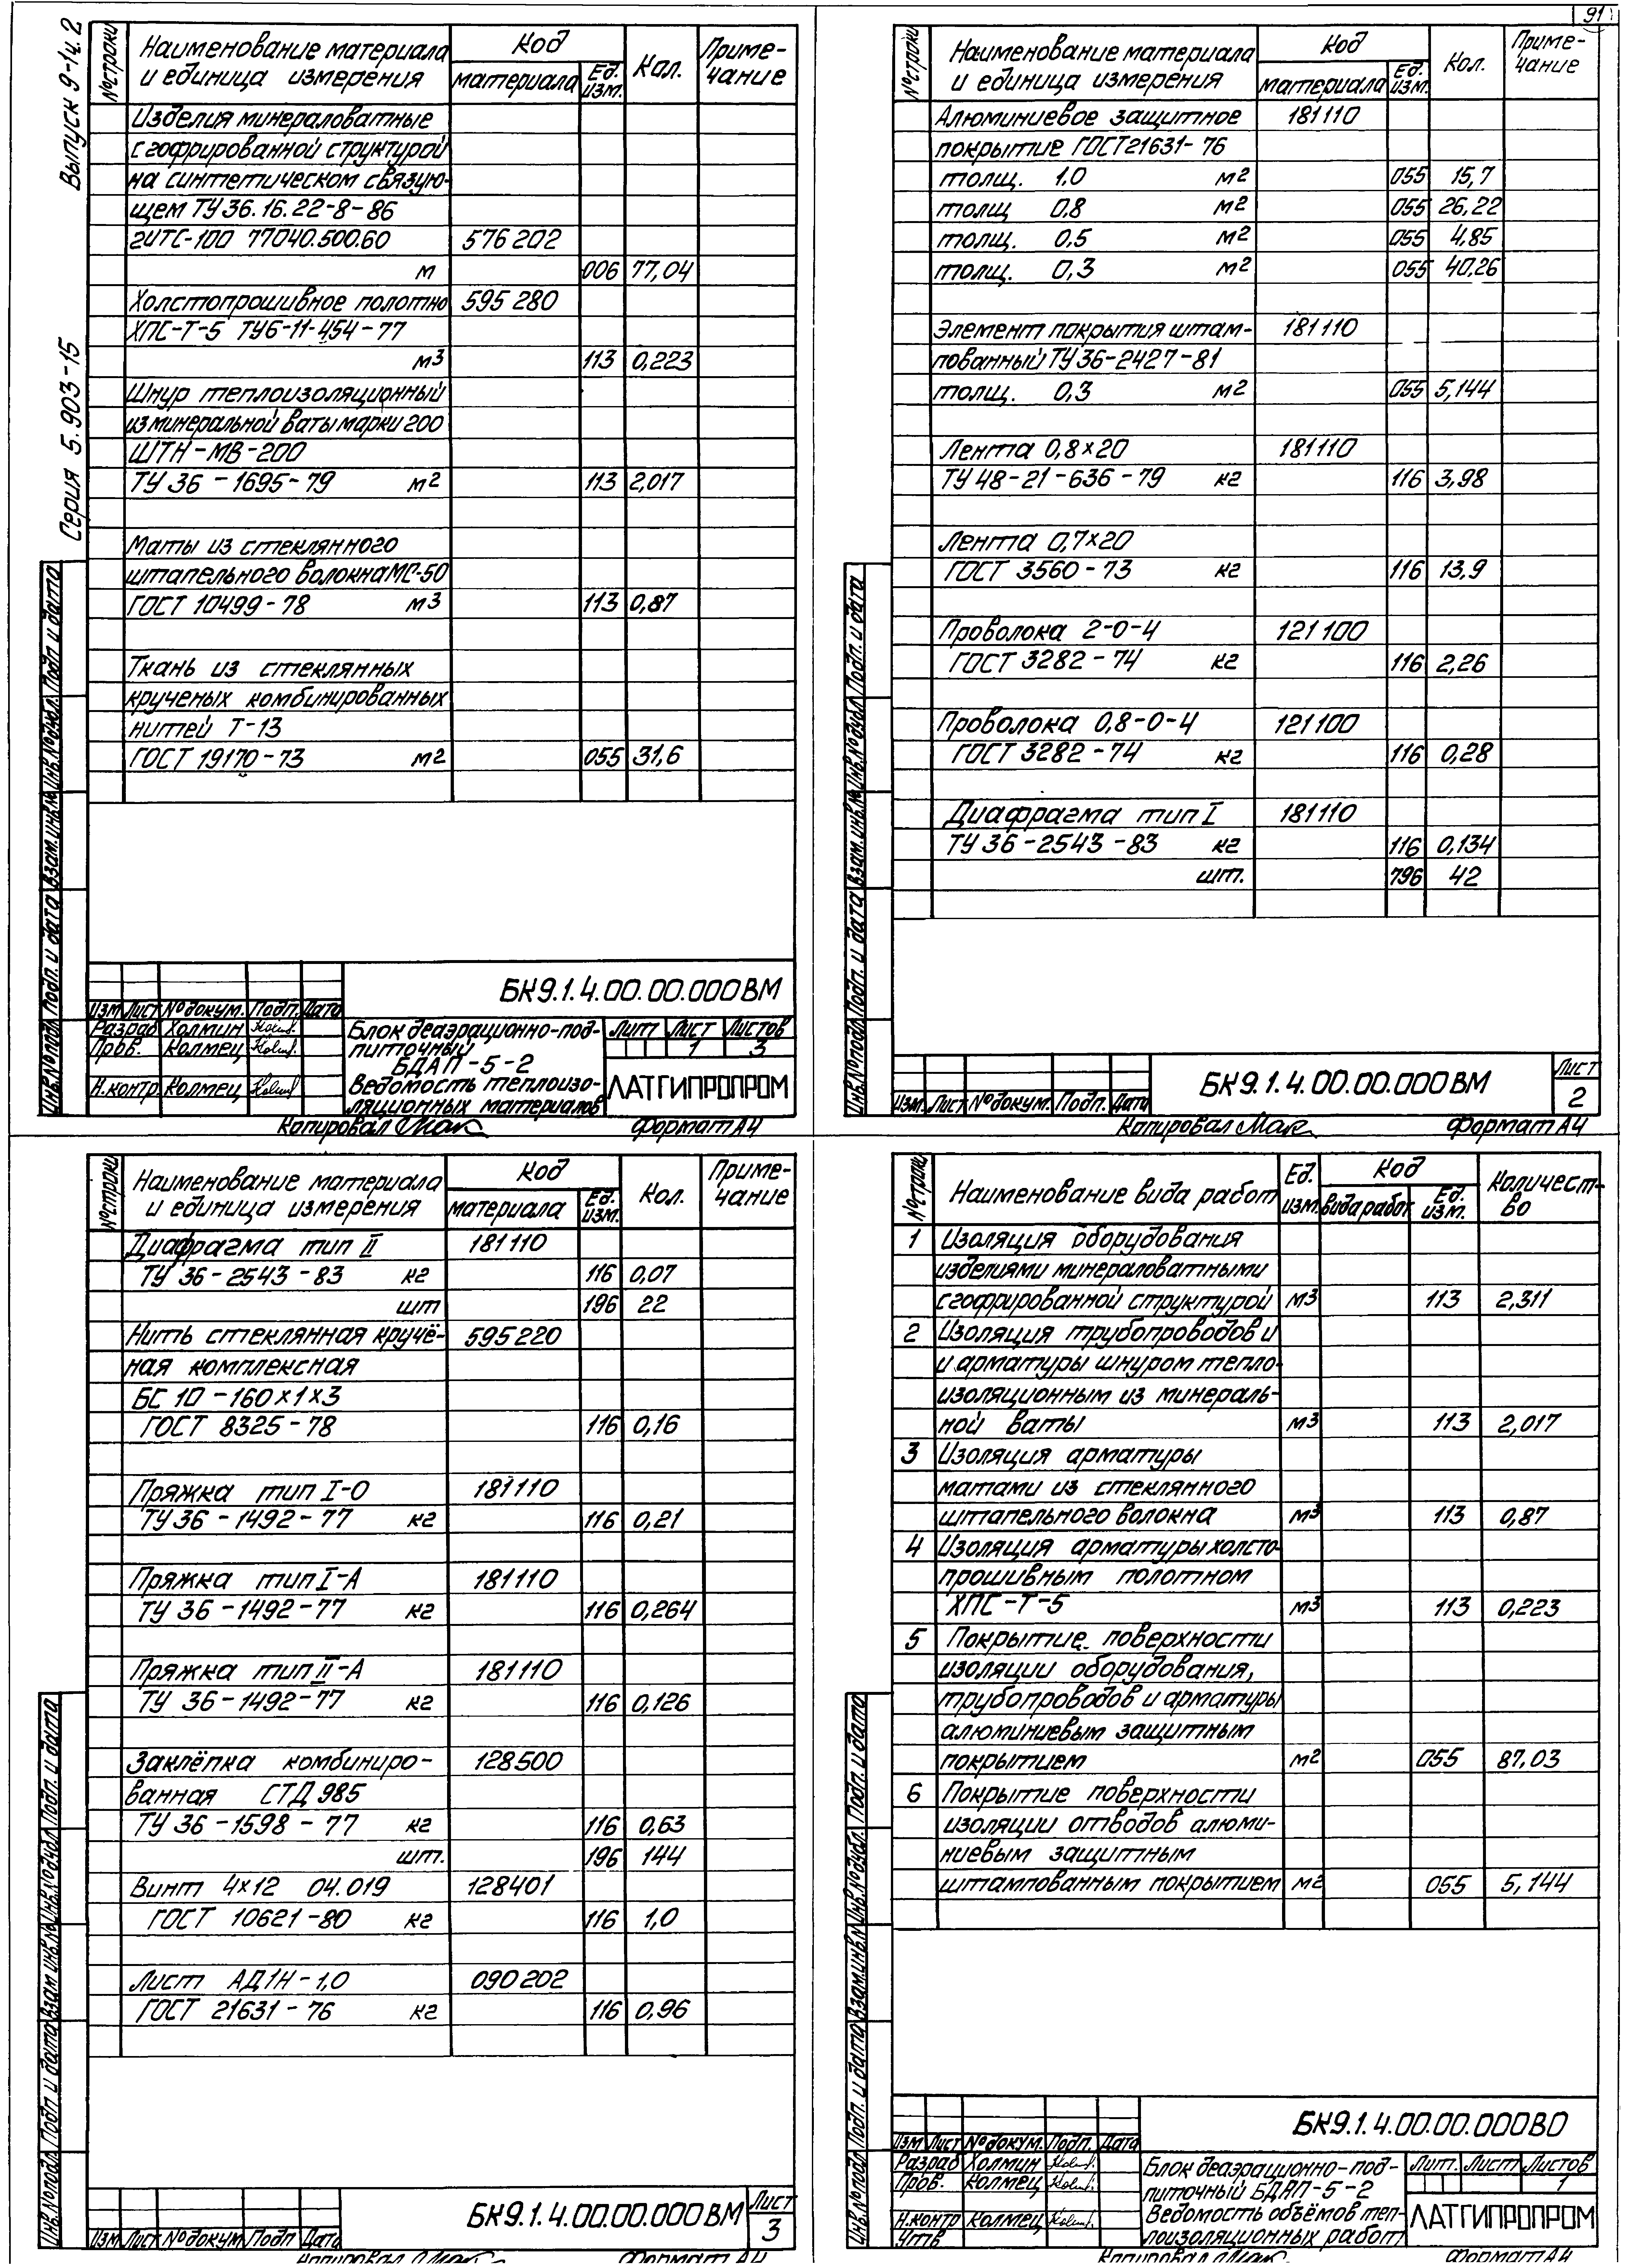 91
Выпуск 9-1ч.2
Серия 5.903-15
№ строки
Наименование материала
и единица измерения
Код
материала
Ед. изм.
Кол.
Приме-
чание
Изделия минераловатные
с гофрированной структурой
на синтетическом связую-
щем ТУ 36.16.22-8-86
2ИТС-100 77040.500.60 576202
м 006 77,04
Холстопрошивное полотно 595280
ХПС-Т-5 ТУ6-11-454-77
м3 113 0,223
Шнур теплоизоляционный
из минеральной ваты марки 200
ШТН-МВ-200
ТУ 36-1695-79 м2 113 2,017
Маты из стеклянного
штапельного волокна МС-50
ГОСТ 10499-78 м3 113 0,87
Ткань из стеклянных
крученых комбинированных
нитей Т-13
ГОСТ 19170-73 м2 055 31,6
Инв.№ подл. Подп. и дата Взам.инв.№ Инв.№ дубл. Подп. и дата
БК9.1.4.00.00.000ВМ
Изм Лист № докум. Подп. Дата
Разраб Холмин
Пров. Колмец
Н.контр. Колмец
Блок деаэрационно-под-
питочный
БДАП-5-2
Ведомость теплоизо-
ляционных материалов
Лит Лист Листов
1 3
ЛАТГИПРОПРОМ
Копировал Формат А4
№ строки
Наименование материала
и единица измерения
Код
материала
Ед. изм.
Кол.
Приме-
чание
Алюминиевое защитное 181110
покрытие ГОСТ 21631-76
толщ. 1.0 м2 055 15,7
толщ 0,8 м2 055 26,22
толщ. 0,5 м2 055 4,85
толщ. 0,3 м2 055 40,26
Элемент покрытия штам- 181110
пованный ТУ 36-2427-81
толщ. 0,3 м2 055 5,144
Лента 0,8×20 181110
ТУ 48-21-636-79 кг 116 3,98
Лента 0,7×20
ГОСТ 3560-73 кг 116 13,9
Проволока 2-0-4 121100
ГОСТ 3282-74 кг 116 2,26
Проволока 0,8-0-4 121100
ГОСТ 3282-74 кг 116 0,28
Диафрагма тип I 181110
ТУ 36-2543-83 кг 116 0,134
шт. 796 42
Инв.№ подл Подп. и дата Взам.инв.№ Инв.№ дубл. Подп. и дата
БК9.1.4.00.00.000ВМ
Лист
2
Изм. Лист № докум. Подп. Дата
Копировал Формат А4
№ строки
Наименование материала
и единица измерения
Код
материала
Ед. изм.
Кол.
Приме-
чание
Диафрагма тип II 181110
ТУ 36-2543-83 кг 116 0,07
шт 196 22
Нить стеклянная кручё- 595220
ная комплексная
БС 10-160×1×3
ГОСТ 8325-78 116 0,16
Пряжка тип I-О 181110
ТУ 36-1492-77 кг 116 0,21
Пряжка тип I-А 181110
ТУ 36-1492-77 кг 116 0,264
Пряжка тип II-А 181110
ТУ 36-1492-77 кг 116 0,126
Заклёпка комбиниро- 128500
ванная СТД 985
ТУ 36-1598-77 кг 116 0,63
шт. 196 144
Винт 4×12 04.019 128401
ГОСТ 10621-80 кг 116 1,0
Лист АД1Н-1,0 090202
ГОСТ 21631-76 кг 116 0,96
Инв.№ подл. Подп. и дата Взам инв.№ Инв.№ дубл Подп. и дата
БК9.1.4.00.00.000ВМ
Лист
3
Изм Лист № докум Подп Дата
Копировал Формат А4
№ строки
Наименование вида работ
Ед. изм.
Код
вида работ
Ед. изм.
Количест-
во
1 Изоляция оборудования
изделиями минераловатными
с гофрированной структурой м3 113 2,311
2 Изоляция трубопроводов и
и арматуры шнуром тепло-
изоляционным из минераль-
ной ваты м3 113 2,017
3 Изоляция арматуры
матами из стеклянного
штапельного волокна м3 113 0,87
4 Изоляция арматуры холсто-
прошивным полотном
ХПС-Т-5 м3 113 0,223
5 Покрытие поверхности
изоляции оборудования,
трубопроводов и арматуры
алюминиевым защитным
покрытием м2 055 87,03
6 Покрытие поверхности
изоляции отводов алюми-
ниевым защитным
штампованным покрытием м2 055 5,144
Инв.№ подл Подп. и дата Взам.инв.№ Инв.№ дубл. Подп. и дата
БК9.1.4.00.00.000ВО
Изм Лист № докум. Подп. Дата
Разраб Холмин
Пров. Колмец
Н.контр Колмец
Утв
Блок деаэрационно-под-
питочный БДАП-5-2
Ведомость объёмов теп-
лоизоляционных работ
Лит. Лист Листов
1
ЛАТГИПРОПРОМ
Копировал Формат А4